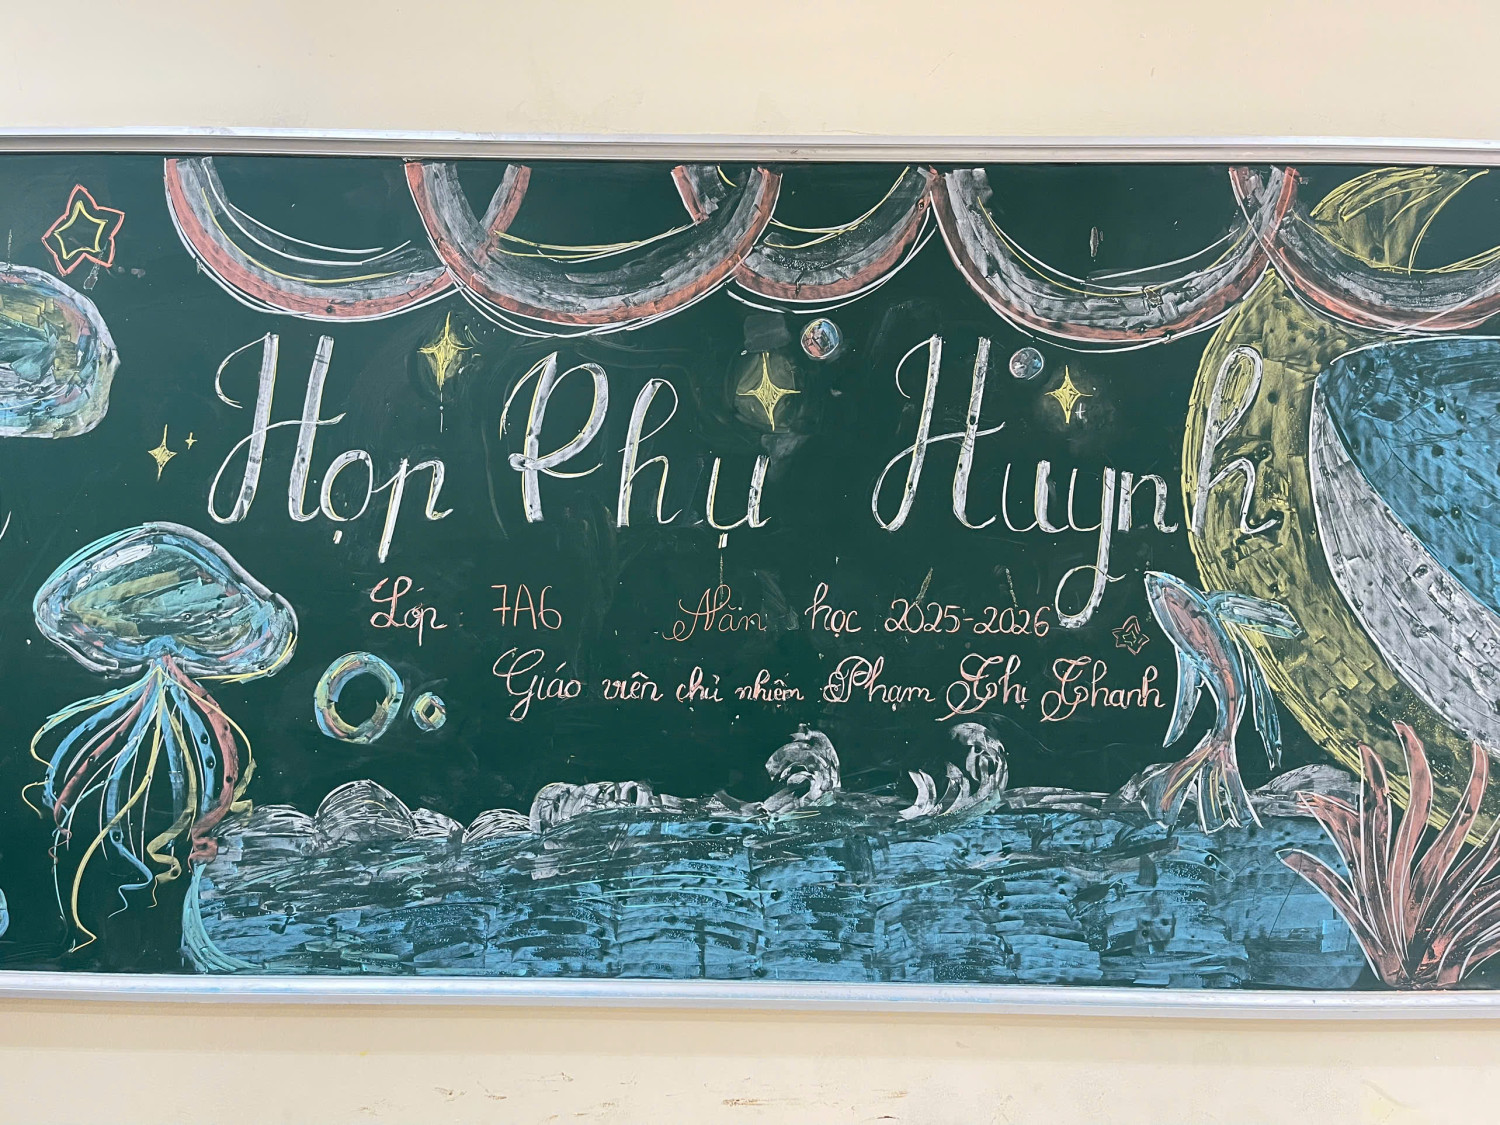 Họp Phụ Huynh
Lớp 7A6 Năm học 2025-2026
Giáo viên chủ nhiệm Phạm Thị Thanh